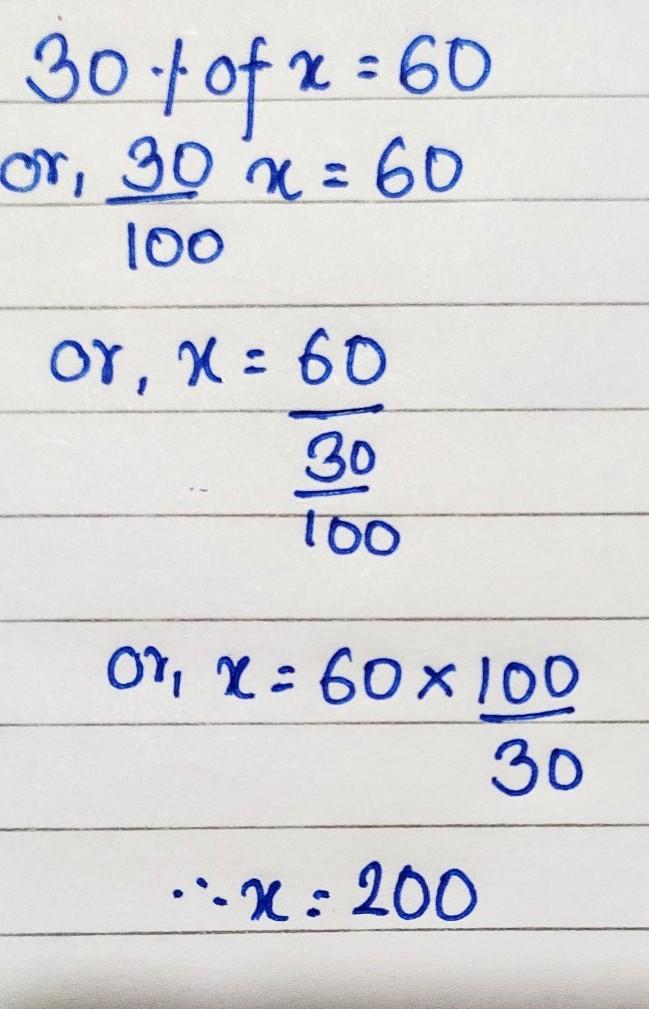 30 % of x = 60
or, 30/100 x = 60
or, x = 60/(30/100)
or, x = 60 × 100/30
∴ x = 200